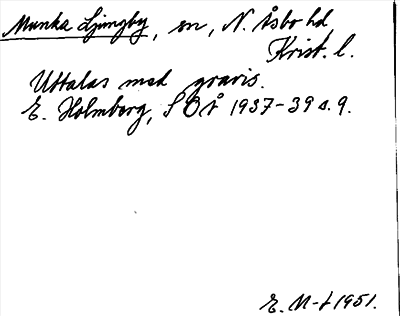 Munka Ljungby, sn, N. Åsbo hd
Krist. l.
Uttalas med gravis.
E. Holmberg, SOÅ 1937-39 s. 9.
E. N-t 1951.